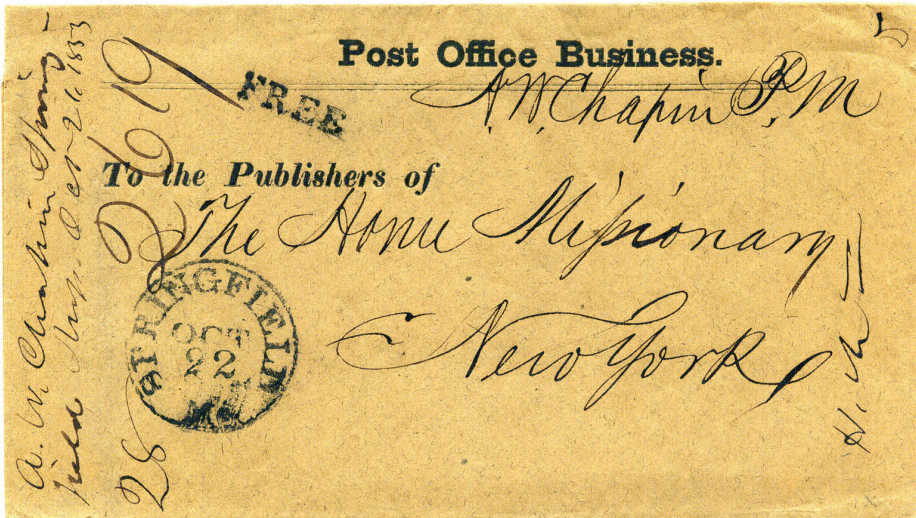 Post Office Business.
FREE
A. W. Chapin P. M
To the Publishers of
The Home Missionary
New York
SPRINGFIELD
OCT
22
A. W. Chapin Spring-
field
Oct 21. 1853
2619
28
H. M.
5